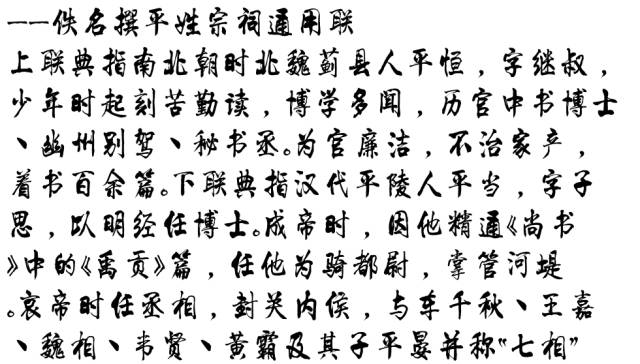 ——佚名撰平姓宗祠通用联
上联典指南北朝时北魏蓟县人平恒，字继叔，
少年时起刻苦勤读，博学多闻，历官中书博士
、幽州别驾、秘书丞。为官廉洁，不治家产，
着书百余篇。下联典指汉代平陵人平当，字子
思，以明经任博士。成帝时，因他精通《尚书
》中的《禹贡》篇，任他为骑都尉，掌管河堤
。哀帝时任丞相，封关内侯，与车千秋、王嘉
、魏相、韦贤、黄霸及其子平晏并称“七相”